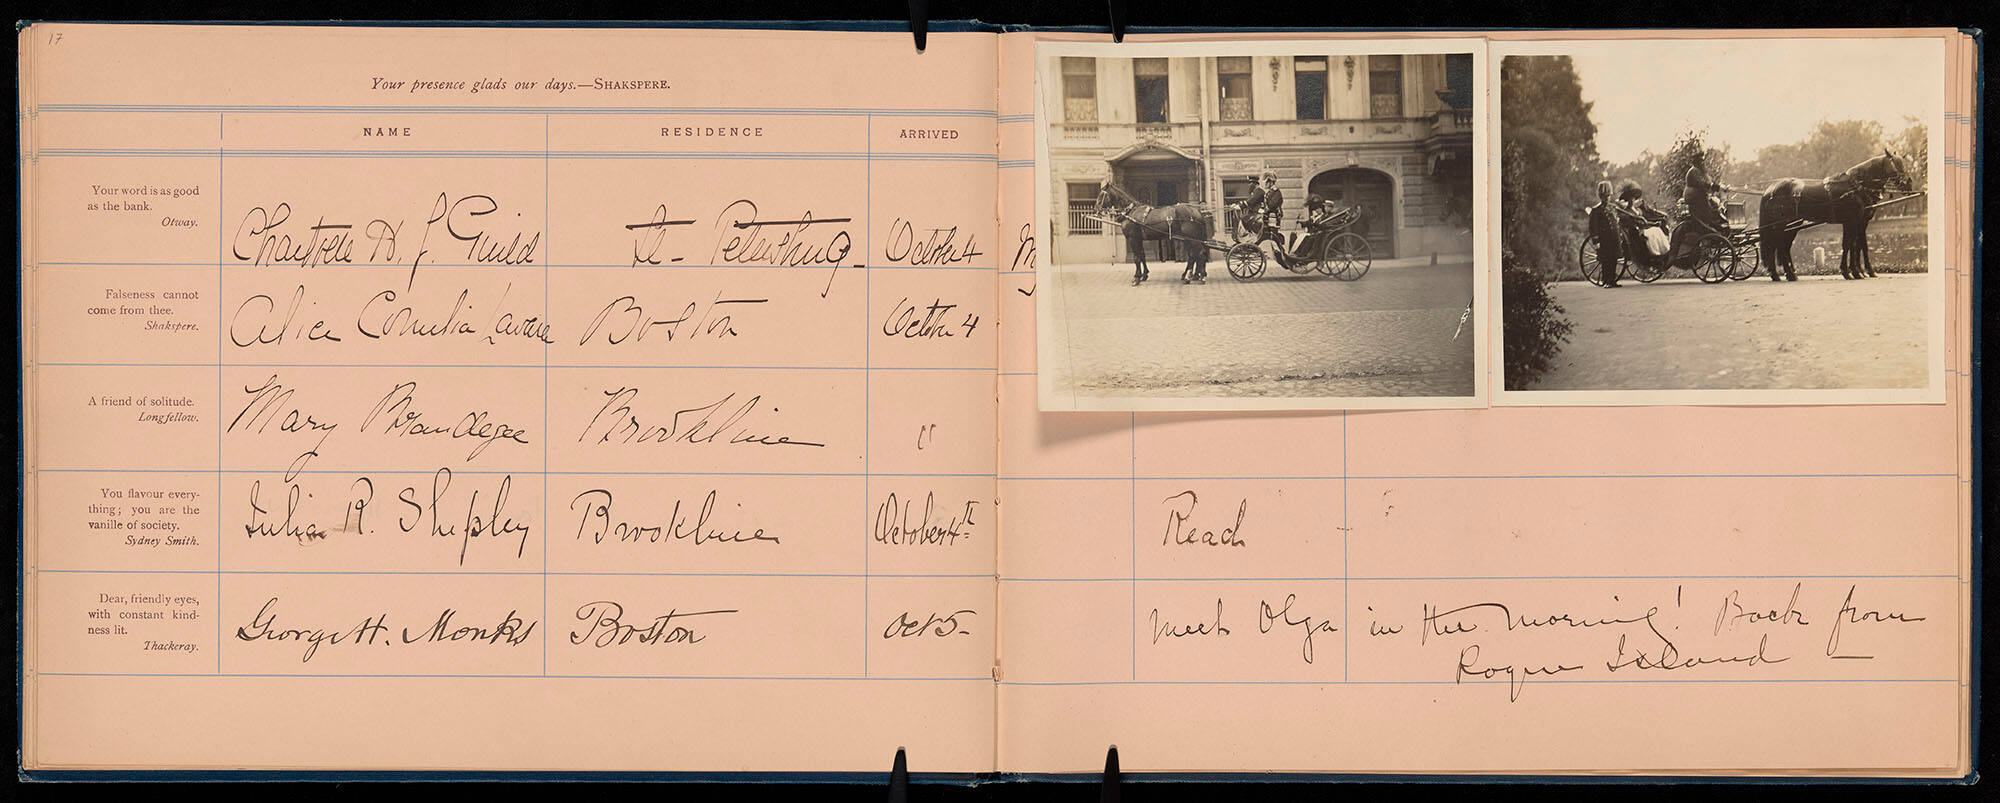 17
Your presence glads our days.—SHAKSPERE.
NAME RESIDENCE ARRIVED
Your word is as good
as the bank.
Otway.
H. J. Guild St- Petersburg- October 4
Falseness cannot
come from thee.
Shakspere.
Alice Cornelia Boston October 4
A friend of solitude.
Longfellow.
Mary Brandegee Brookline "
You flavour every-
thing; you are the
vanille of society.
Sydney Smith.
Julia R. Shepley Brookline October 4th Reach
Dear, friendly eyes,
with constant kind-
ness lit.
Thackeray.
George H. Monks Boston Oct 5- Meet Olga in the morning! Back from
Rogue Island —